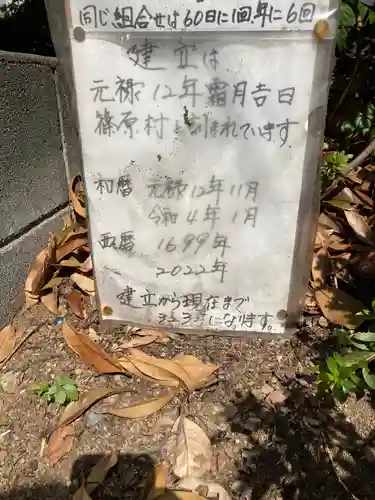 同じ組合せは60日に1回年に6回
建立は、
元禄12年霜月吉日
篠原村と刻まれています
和暦 元禄12年11月
令和4年1月
西暦 1699年
2022年
建立から現在まで
323年になります。